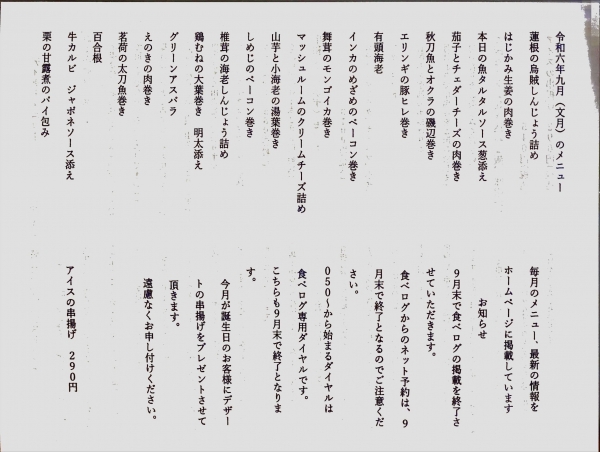 令和六年九月（文月）のメニュー
蓮根の烏賊しんじょう詰め
はじかみ生姜の肉巻き
本日の魚タルタルソース葱添え
茄子とチェダーチーズの肉巻き
秋刀魚とオクラの磯辺巻き
エリンギの豚ヒレ巻き
有頭海老
インカのめざめのベーコン巻き
舞茸のモンゴイカ巻き
マッシュルームのクリームチーズ詰め
山芋と小海老の湯葉巻き
しめじのベーコン巻き
椎茸の海老しんじょう詰め
鶏むねの大葉巻き　明太添え
グリーンアスパラ
えのきの肉巻き
茗荷の太刀魚巻き
百合根
牛カルビ　ジャポネソース添え
栗の甘露煮のパイ包み
毎月のメニュー、最新の情報を
ホームページに掲載しています
お知らせ
９月末で食べログの掲載を終了さ
せていただきます。
食べログからのネット予約は、９
月末で終了となるのでご注意くだ
さい。
０５０〜から始まるダイヤルは
食べログ専用ダイヤルです。
こちらも９月末で終了となりま
す。
今月が誕生日のお客様にデザー
トの串揚げをプレゼントさせて
頂きます。
遠慮なくお申し付けください。
アイスの串揚げ　２９０円